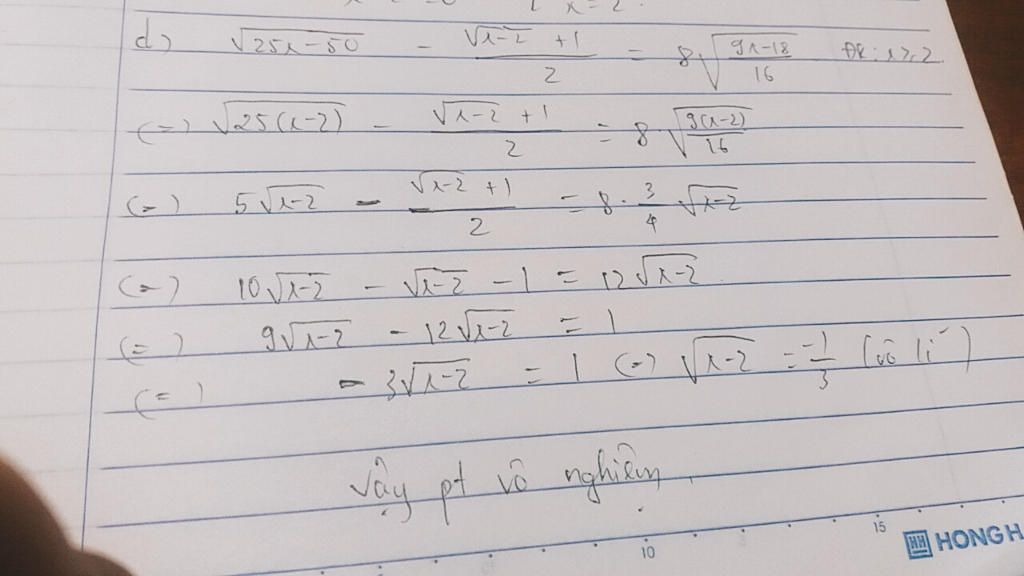 x = 2.
d) √(25x-50) - (√(x-2) +1)/2 = 8√((9x-18)/16) ĐK: x≥2.
(=) √(25(x-2)) - (√(x-2) +1)/2 = 8√(9(x-2)/16)
(=) 5√(x-2) - (√(x-2) +1)/2 = 8 · 3/4 √(x-2)
(=) 10√(x-2) - √(x-2) - 1 = 12√(x-2)
(=) 9√(x-2) - 12√(x-2) = 1
(=) -3√(x-2) = 1 (=) √(x-2) = -1/3 (vô lí)
Vậy pt vô nghiệm.
10 15 HH HONG H